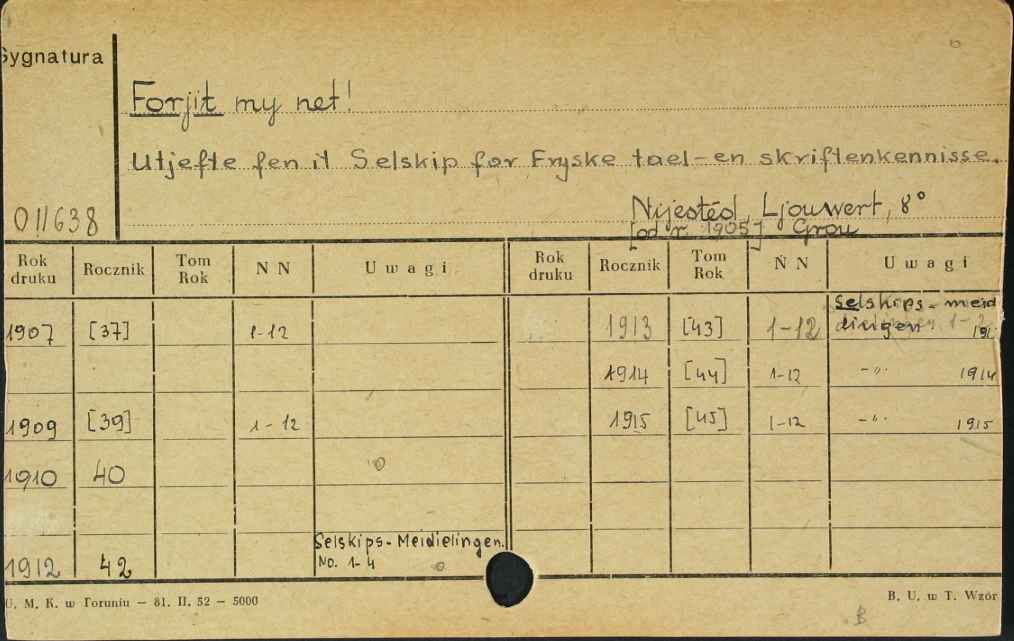 Sygnatura
Forjit my net!
Utjefte fen it Selskip for Fryske tael-en skriftenkennisse.
011638
Nijested, Ljouwert, 8°
[od r. 1905] Grou
Rok druku Rocznik Tom Rok N N Uwagi Rok druku Rocznik Tom Rok N N Uwagi
1907 [37] 1-12 1913 [43] 1-12 Selskips-meid
dieligen 191
1914 [44] 1-12 -"- 1914
1909 [39] 1-12 1915 [45] 1-12 -"- 1915
1910 40
1912 42 Selskips-Meidielingen.
No. 1-4
U. M. K. w Toruniu — 81. II. 52 — 5000
B. U. w T. Wzór
B